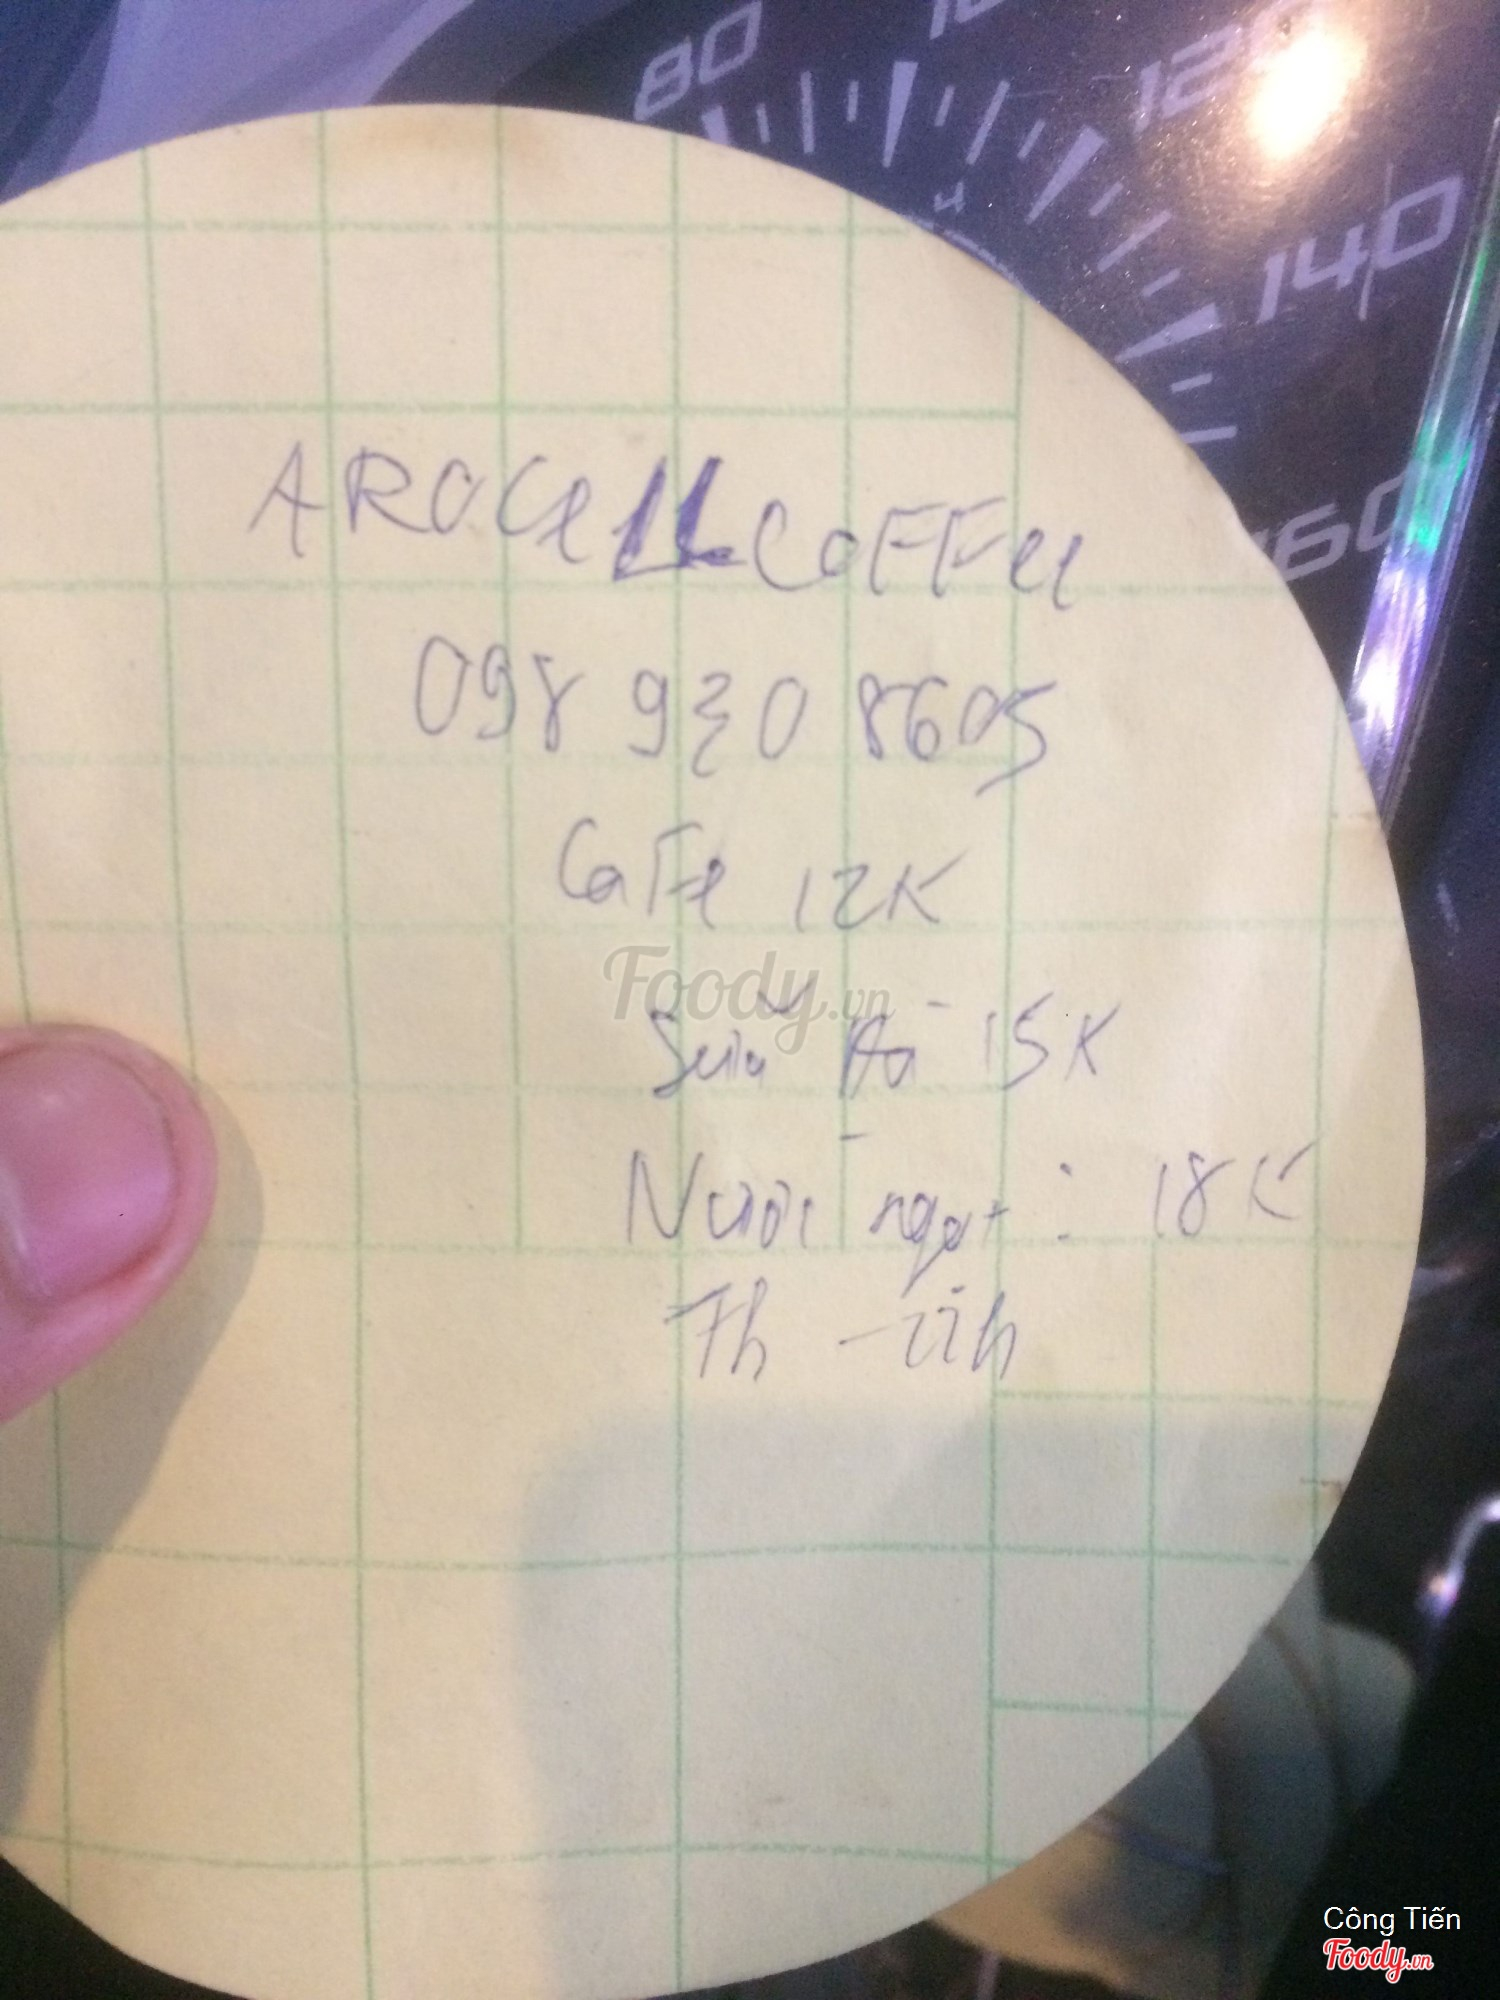 80
120
140
160
AROCeLL COFFee
098 930 8605
CaFe 12K
Sữa đá 15K
Nước ngọt : 18K
7h - 22h
Foody.vn
Công Tiến
Foody.vn